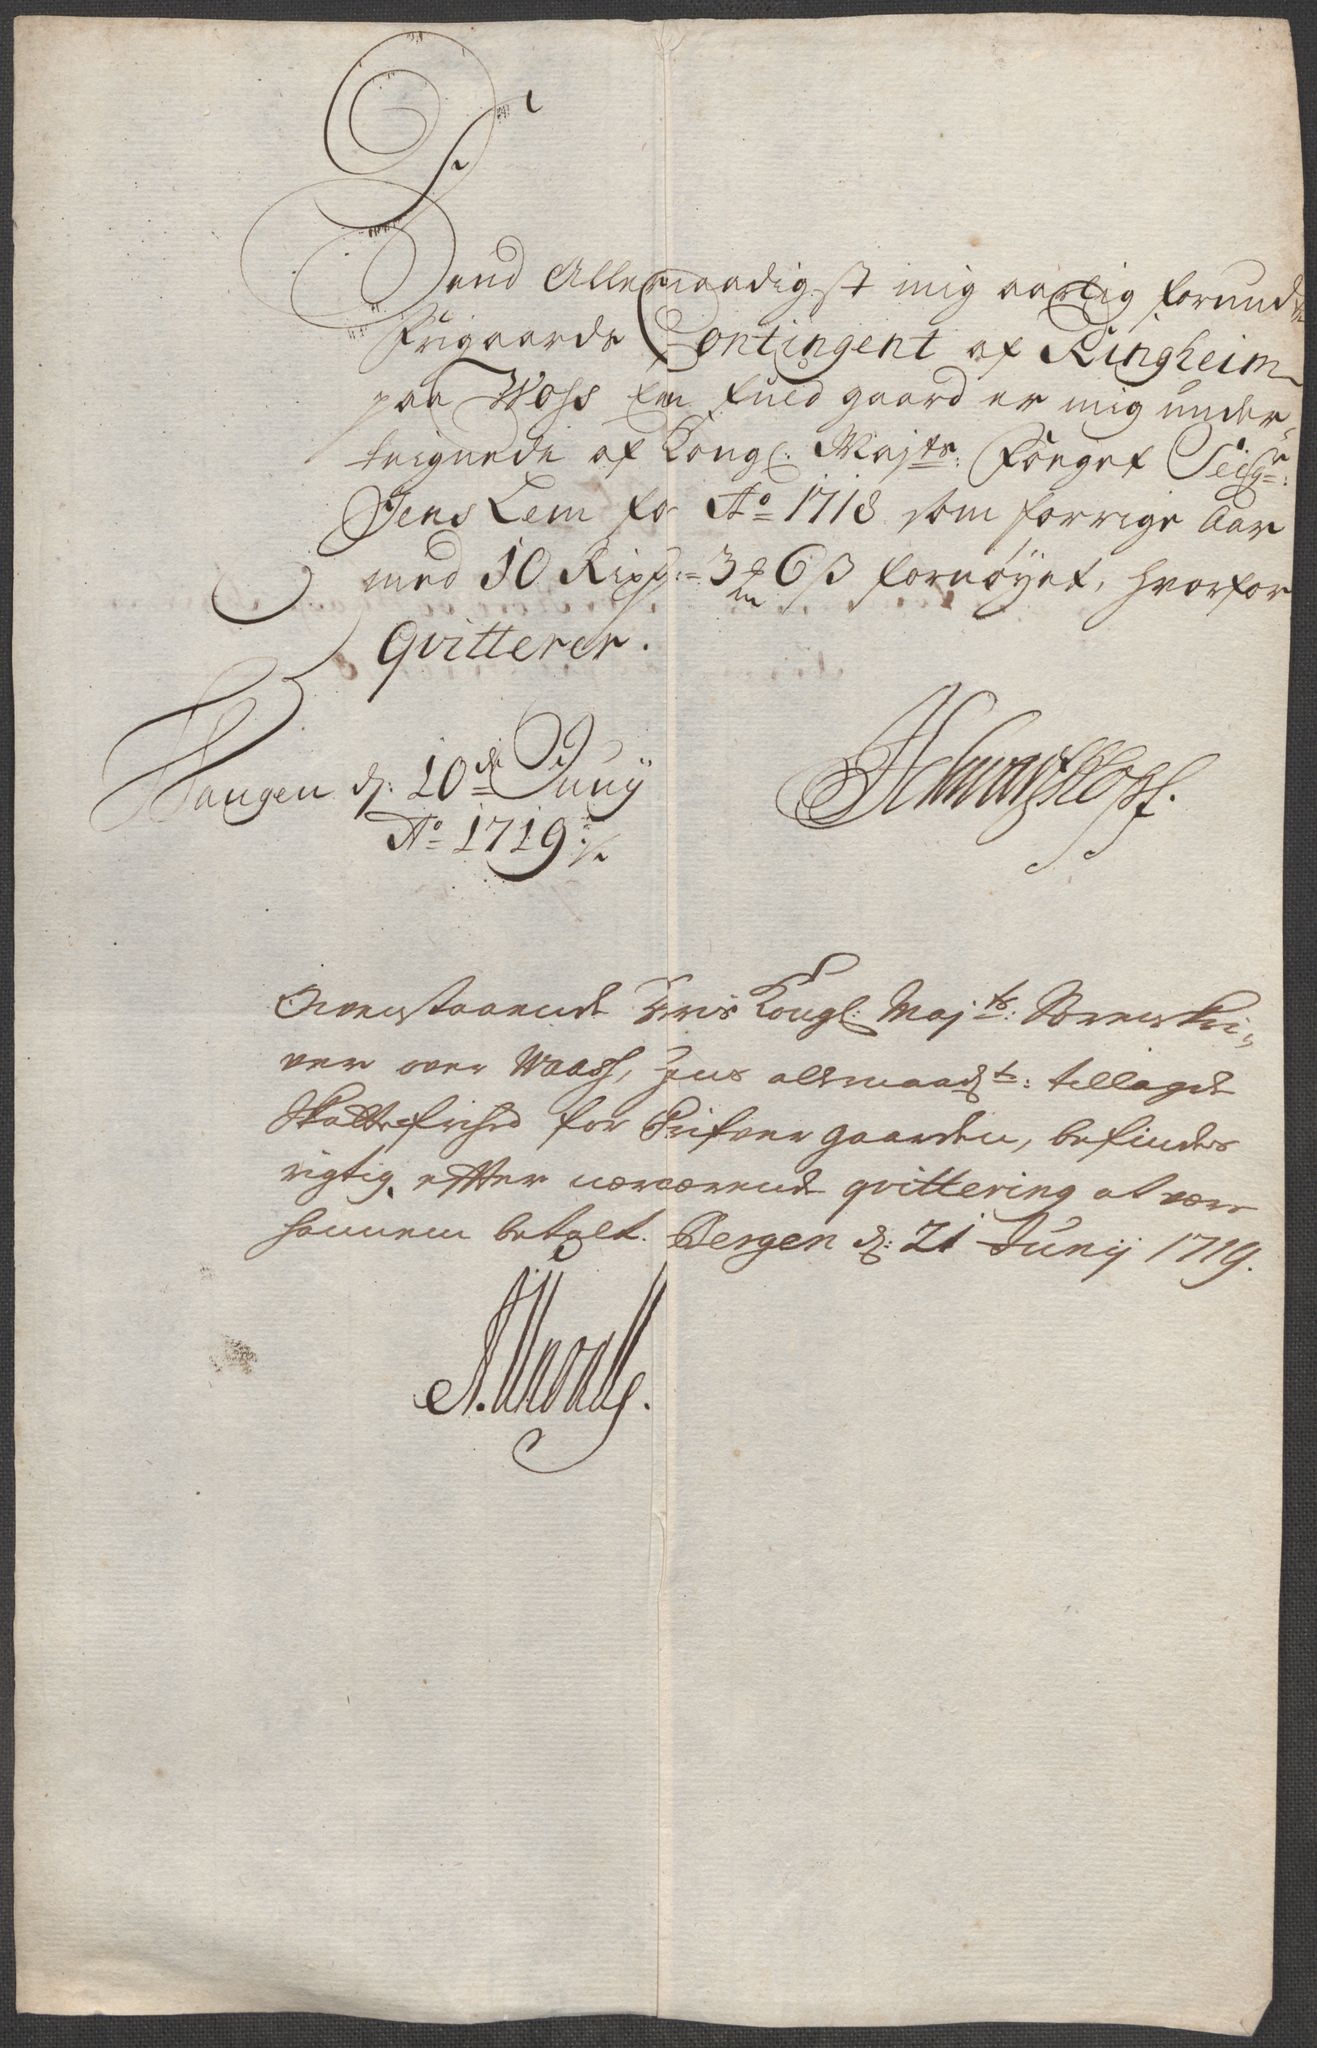 Dend Allernaadigst mig aarlig forundte
Frigaards Contingent af Ringheim
paa Woss En fuld gaard er mig under-
teignede af Kongl: Majts: Foeget Seigr:
Jens Lem for Ao 1718 som forrige Aar
med 10 Rixd: 3 mk 6 ß fornøyet, hvorfor
qvitterer.
Wangen d: 10de Juny
Ao 1719
Schwartzkopf.
Ovenstaaende Kongl: Majts: Sorenskri-
ver over Waass, hans allernaadt: tillagde
Skattefrihed for gaarden, befindes
rigtig, effter nærværende qvittering at være
hannem betalt. Bergen d: 21 Junij 1719.